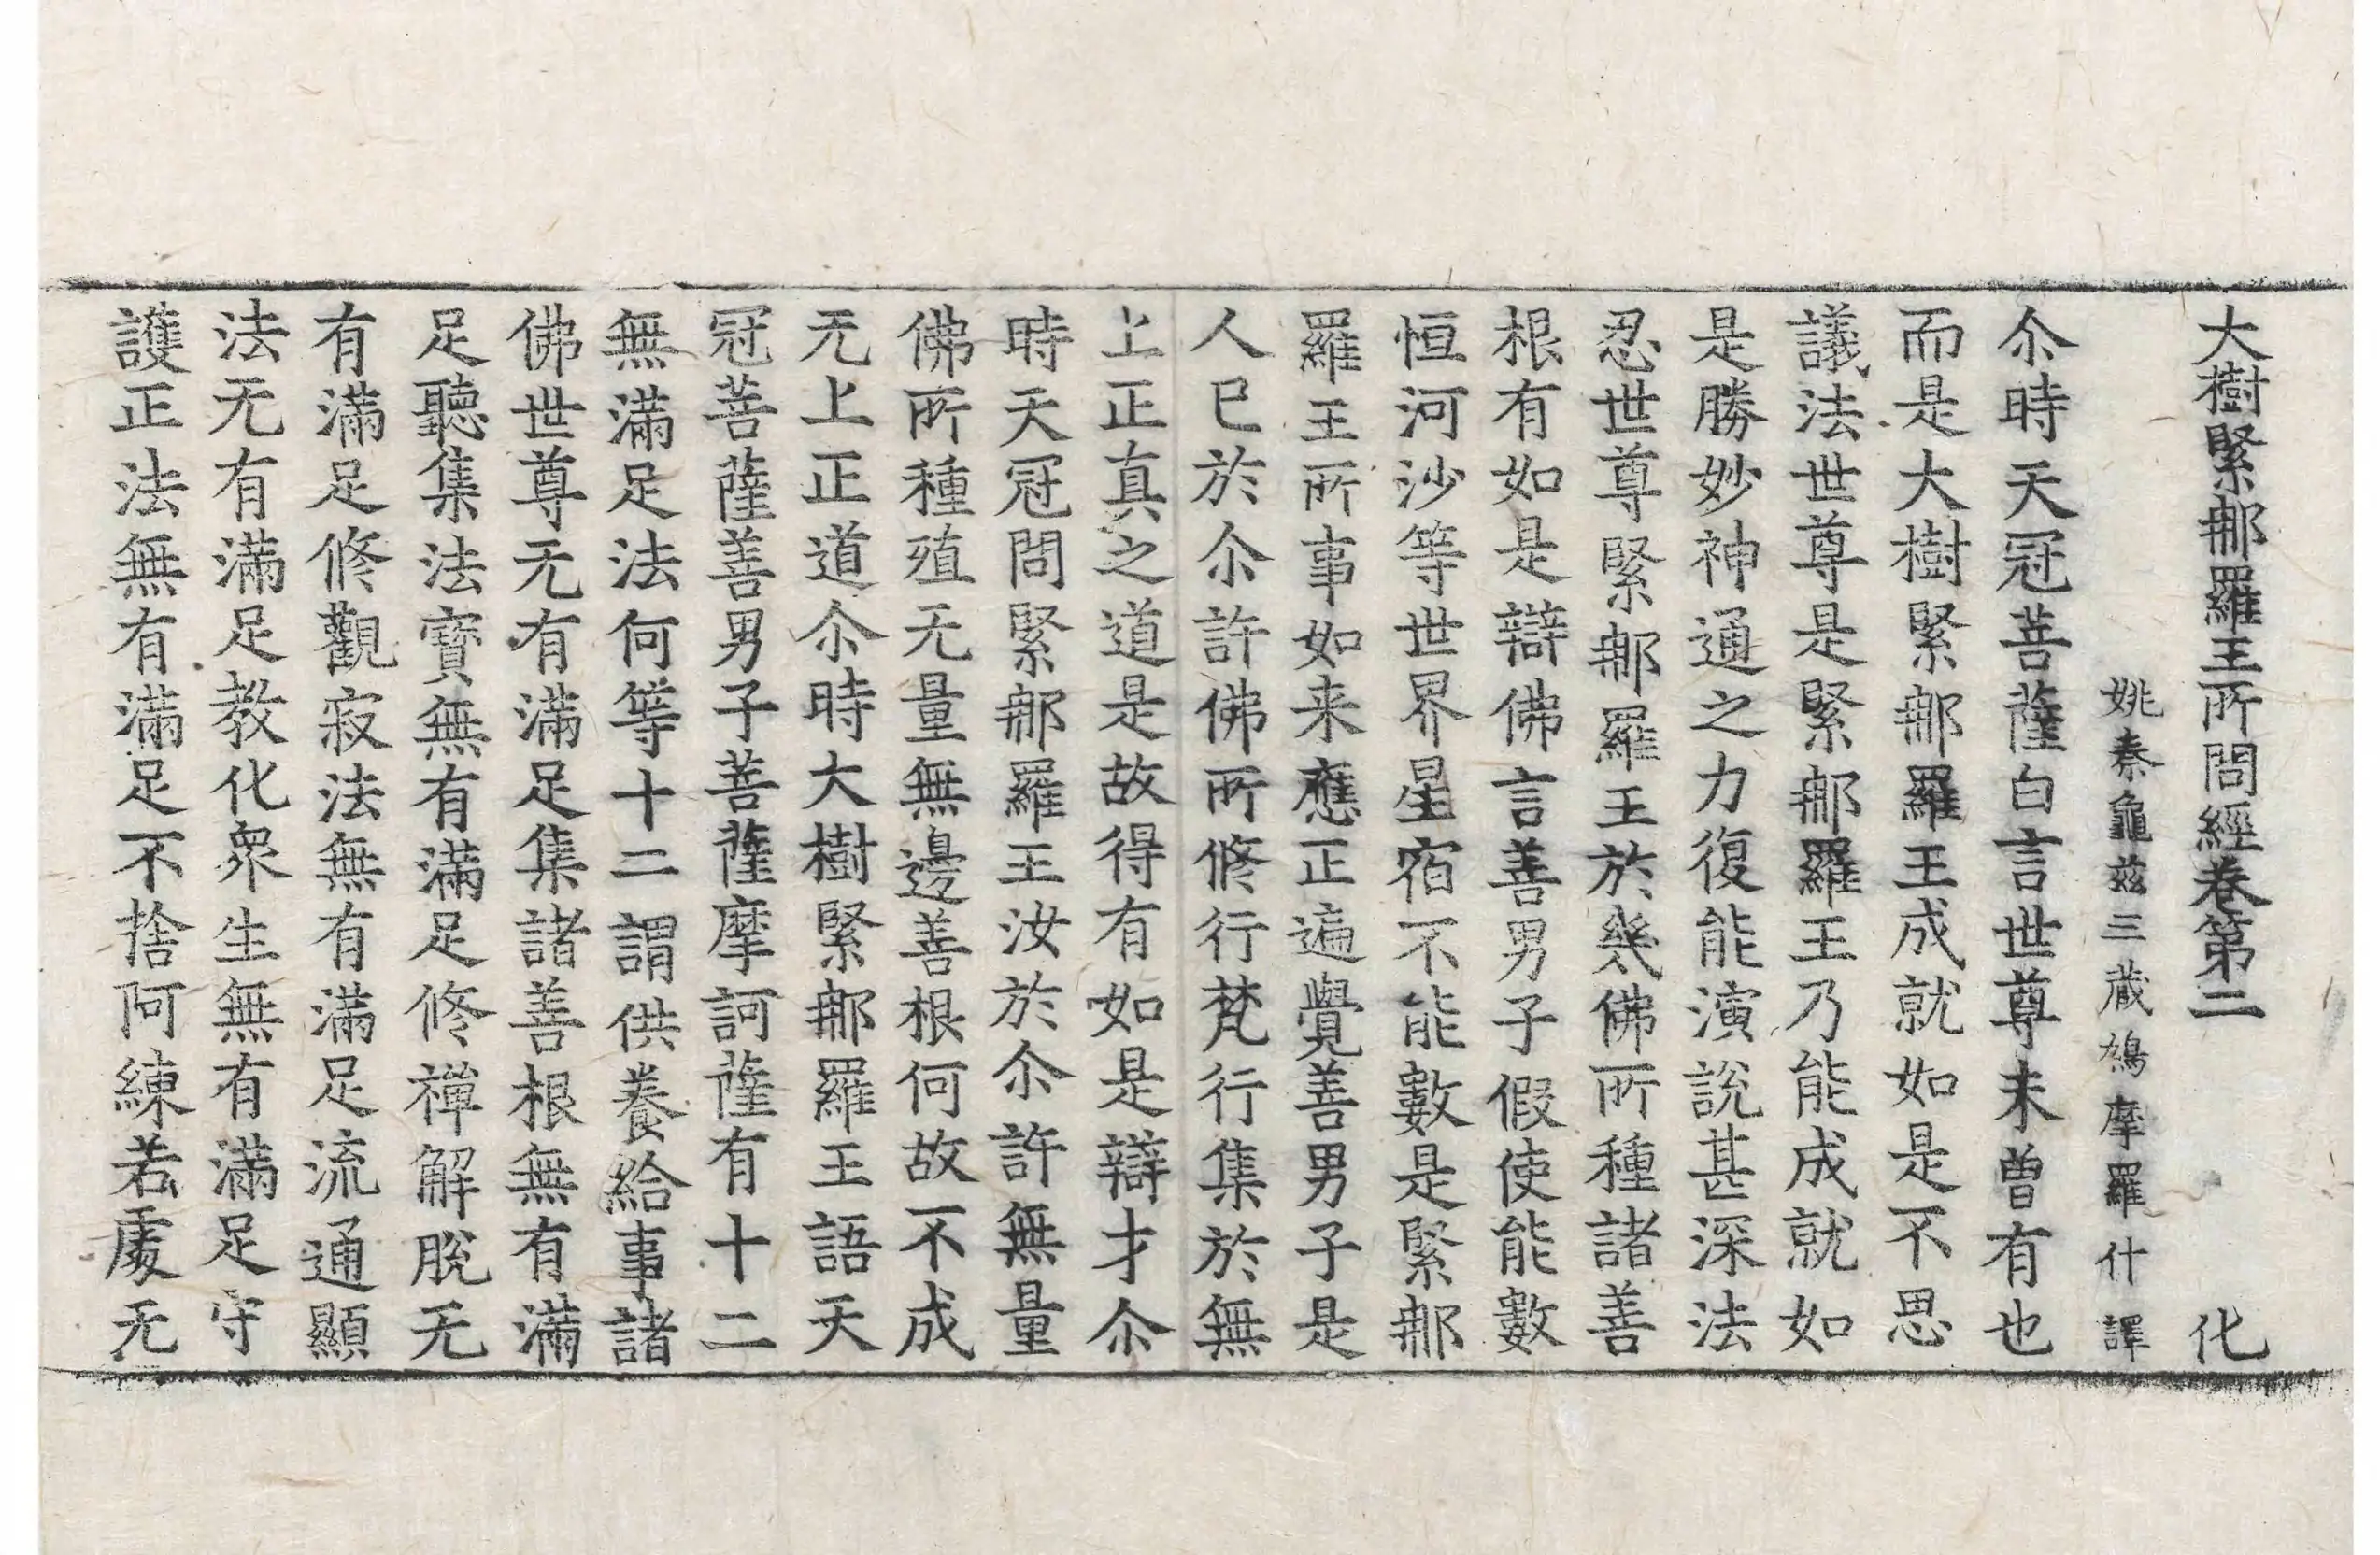 大樹緊那羅王所問經卷第二 化
姚秦龜茲三藏鳩摩羅什譯
尒時天冠菩薩白言世尊未曾有也
而是大樹緊那羅王成就如是不思
議法世尊是緊那羅王乃能成就如
是勝妙神通之力復能演說甚深法
忍世尊緊那羅王於幾佛所種諸善
根有如是辯佛言善男子假使能數
恒河沙等世界星宿不能數是緊那
羅王所事如来應正遍覺善男子是
人已於尒許佛所修行梵行集於無
上正真之道是故得有如是辯才尒
時天冠問緊那羅王汝於尒許無量
佛所種殖无量無邊善根何故不成
无上正道尒時大樹緊那羅王語天
冠菩薩善男子菩薩摩訶薩有十二
無滿足法何等十二謂供養給事諸
佛世尊无有滿足集諸善根無有滿
足聽集法寶無有滿足修禪解脫无
有滿足修觀寂法無有滿足流通顯
法无有滿足教化衆生無有滿足守
護正法無有滿足不捨阿練若處无